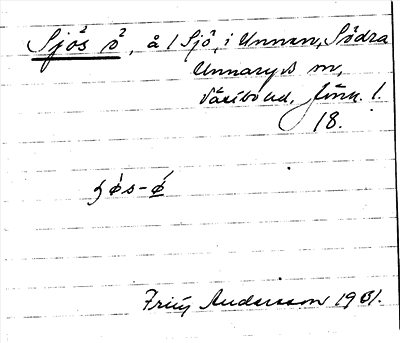 Sjös ö, å / Sjö, i Unnen, Södra
Unnaryds sn,
Västbo hd, Jönk. l.
18.
ʂø̀s-ǿ
Fritz Andersson 1931.